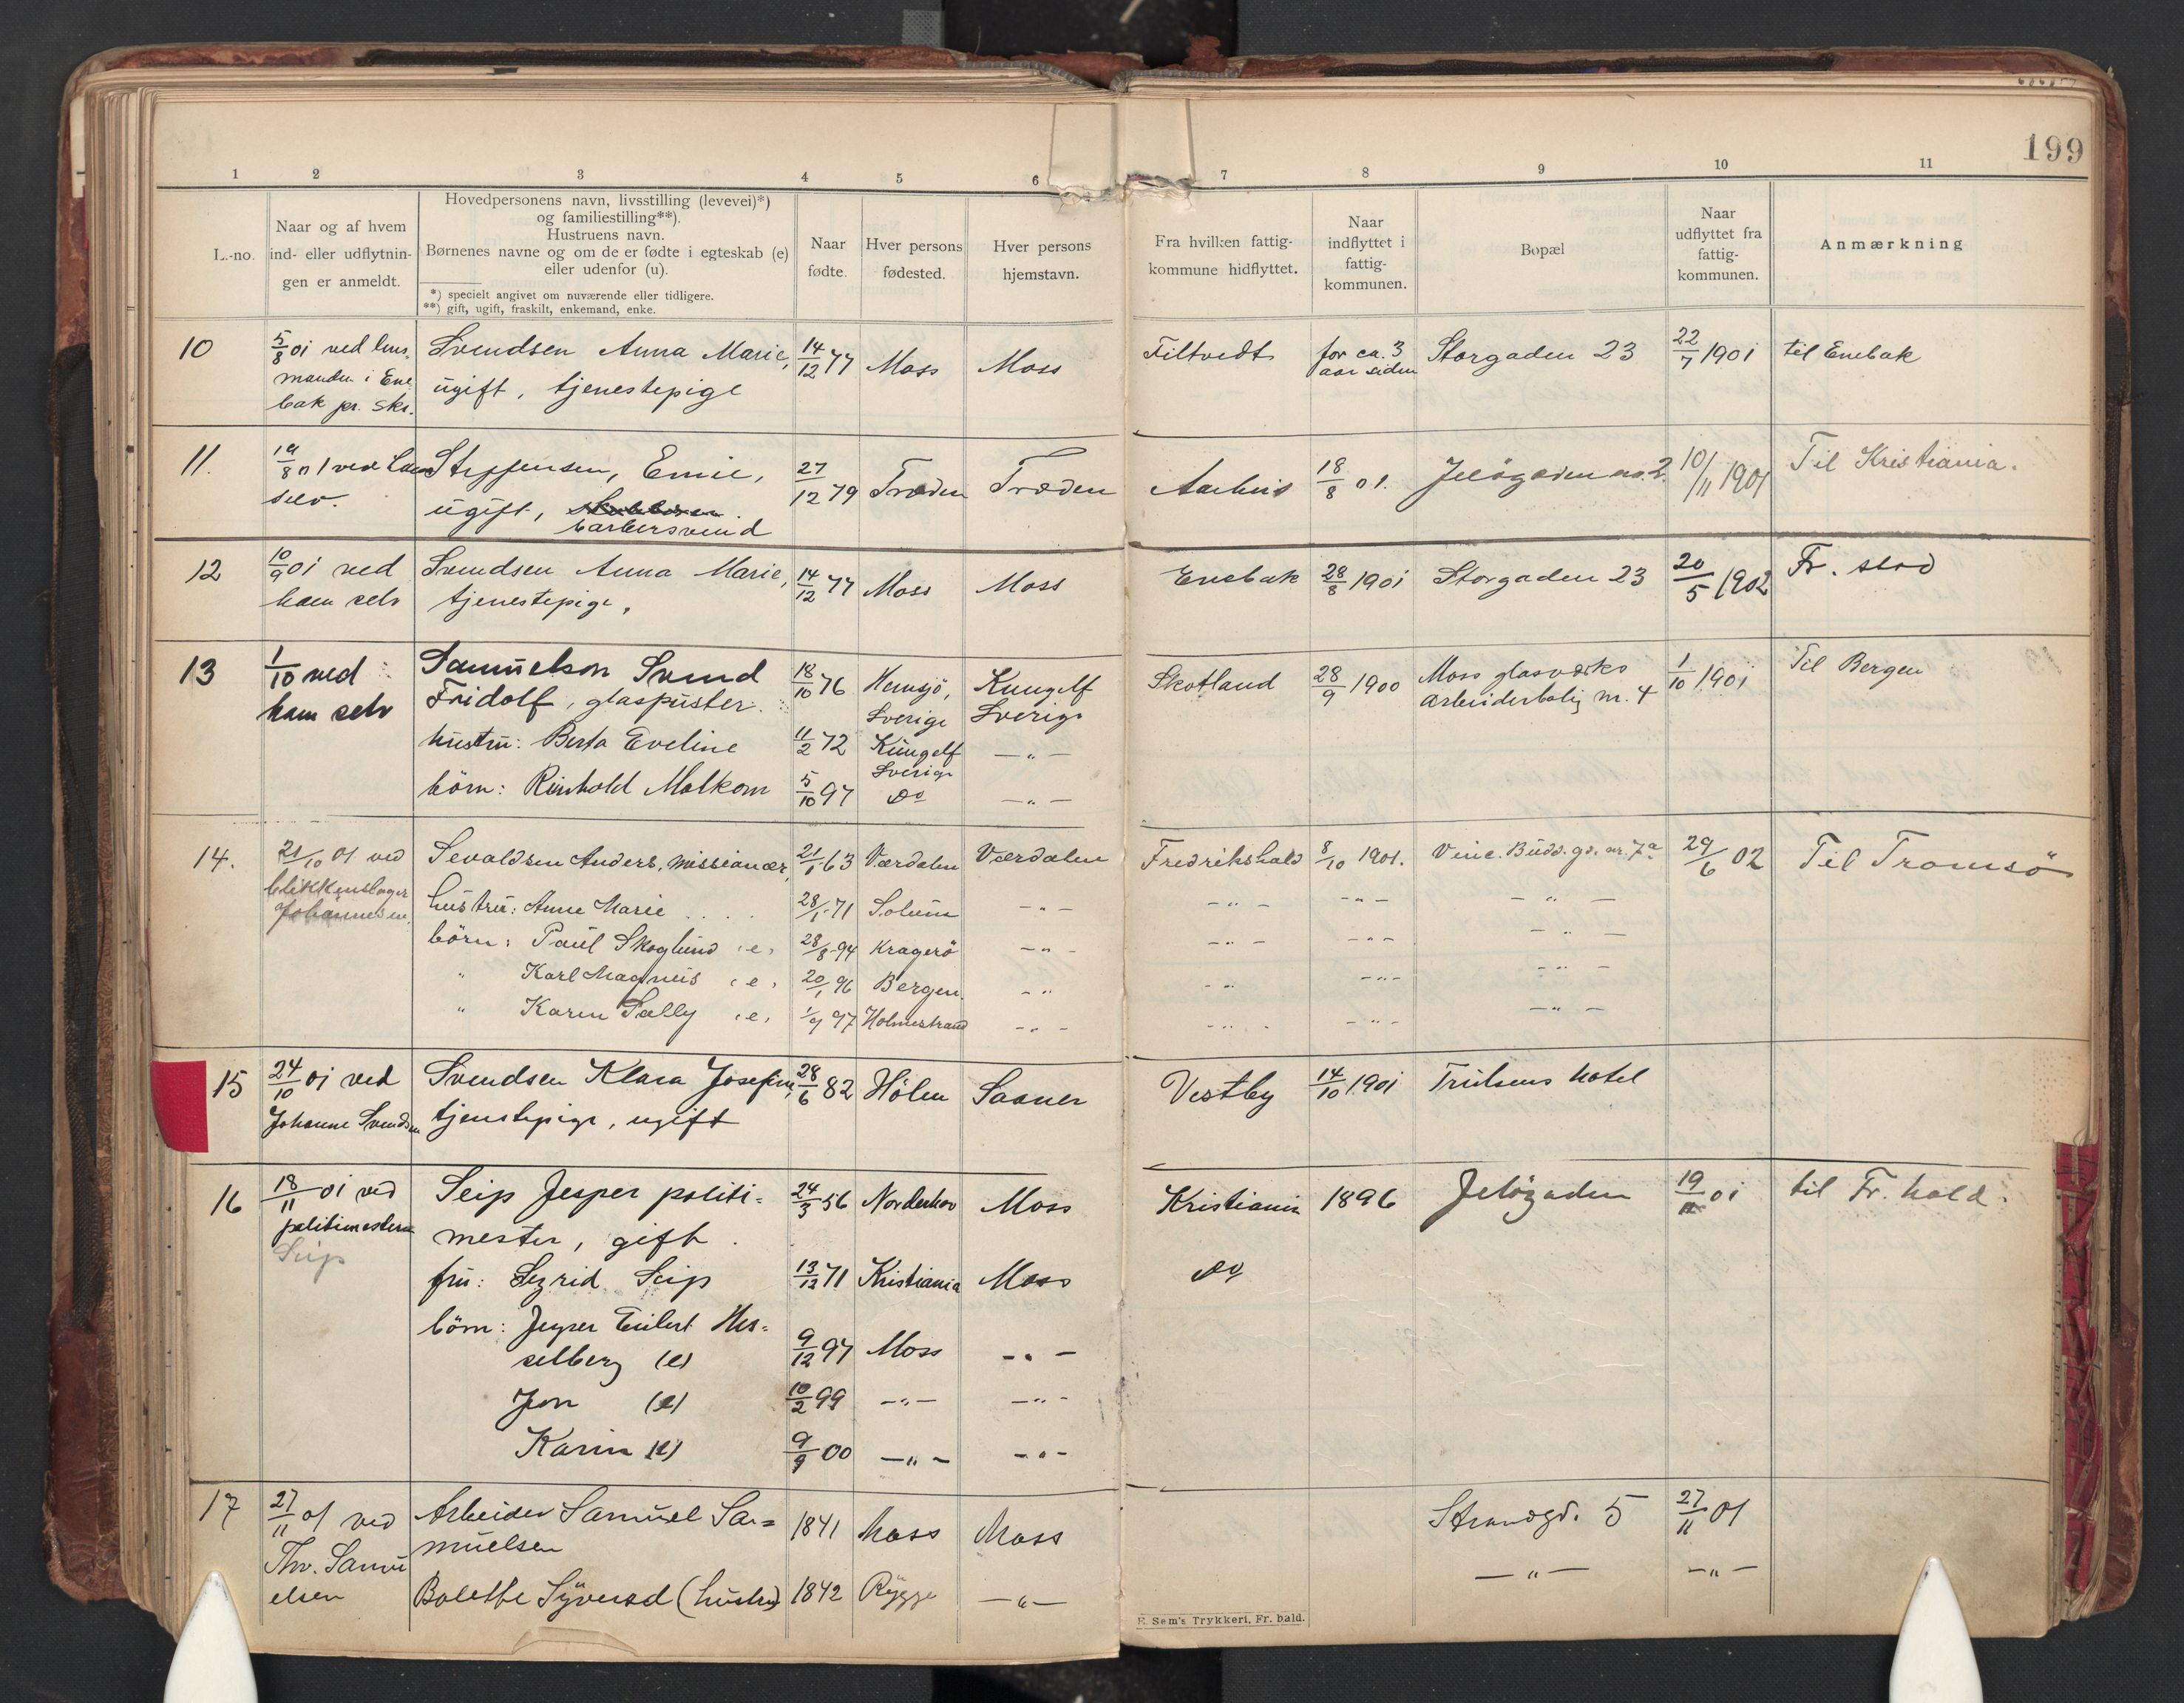 199
1 2 3 4 5 6 7 8 9 10 11
L.-no.
Naar og af hvem
ind- eller udflytnin-
gen er anmeldt.
Hovedpersonens navn, livsstilling (levevei)*)
og familiestilling**).
Hustruens navn.
Børnenes navne og om de er fødte i egteskab (e)
eller udenfor (u).
*) specielt angivet om nuværende eller tidligere.
**) gift, ugift, fraskilt, enkemand, enke.
Naar
fødte.
Hver persons
fødested.
Hver persons
hjemstavn.
Fra hvilken fattig-
kommune hidflyttet.
Naar
indflyttet i
fattig-
kommunen.
Bopæl
Naar
udflyttet fra
fattig-
kommunen.
Anmærkning
10
5/8 01 ved lens
manden i Ene
bak pr. skr.
Svendsen Anna Marie,
ugift, tjenestepige
14/12 77
Moss
Moss
Filtvedt
for ca. 3
aar siden
Storgaden 23
22/7 1901
til Enebak
11.
19/8 01 ved ham
selv.
Steffensen, Emil,
ugift,
barbersvend
27/12 79
Træden
Træden
Aarhus
18/8 01.
Jeløgaden no. 2.
10/11 1901
Til Kristiania.
12
10/9 01 ved
ham selv
Svendsen Anna Marie,
tjenestepige,
14/12 77
Moss
Moss
Enebak
28/8 1901
Storgaden 23
20/5 1902
Fr. stad
13
1/10 ved
ham selv
Samuelson Svend
Fridolf, glaspuster.
hustru: Berta Eveline
börn: Reinhold Malkom
18/10 76
11/2 72
5/10 97
Hemsjö,
Sverige
Kungelf
Sverige
do
Kungelf
Sverige
— " —
— " —
Skotland
28/9 1900
Moss glasværks
arbeiderbolig nr. 4
1/10 1901
Til Bergen
14.
21/10 01 ved
blikkenslager
Johannesen.
Sevaldsen Anders, missionær,
hustru: Anne Marie . . . .
börn: Paul Skoglund (e)
" Karl Magnus (e)
" Karen Sally (e)
21/1 63
28/1 71
28/8 94
20/1 96
1/9 97
Værdalen
Solum
Kragerö
Bergen.
Holmestrand
Værdalen
- " -
- " -
- "
- " -
Fredrikshald
- " -
- " -
- "
- " -
8/10 1901.
- " -
- " -
- " -
- " -
Vinc. Budd. gd. nr. 7a
- " -
- " -
- " -
- " -
29/6 02
Til Tromsö
15
24/10 01 ved
Johanne Svendsen
Svendsen Klara Josefine,
tjenstepige, ugift
28/6 82
Hölen
Saaner
Vestby
14/10 1901
Trulsens hotel
16
18/11 01 ved
politimesteren
Seip
Seip Jesper politi=
mester, gift.
fru: Sigrid Seip
börn: Jesper Eilert Hes=
selberg (e)
Jon (e)
Karin (e)
24/3 56
13/12 71
9/12 97
10/2 99
9/9 00
Norderhov
Kristiania
Moss
— " —
— " —
Moss
Moss
— " —
— " —
— " —
Kristiania
do
1896
Jeløgaden
19/11 01
til Fr. hald.
17
27/11 01 ved
Thv. Samu
elsen
Arbeider Samuel Sa=
muelsen
Bolette Syversd (hustru)
1841
1842
Moss
Rygge
Moss
— " —
Strandgd. 5
— " —
27/11 01
— " —
E. Sem's Trykkeri, Fr. hald.